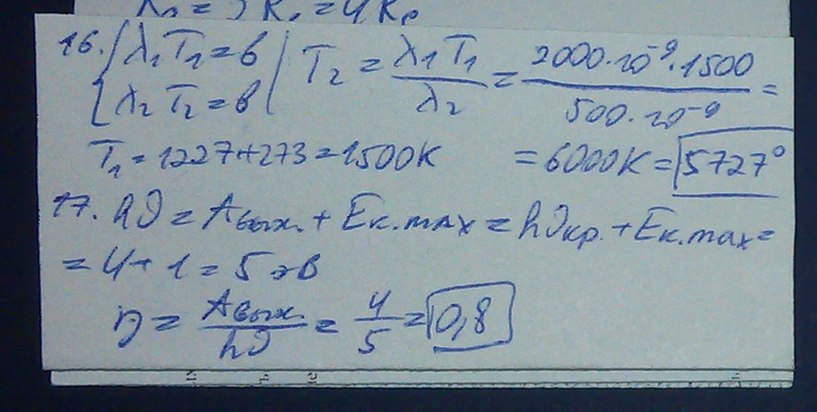 λ₂ = 2 Kр = 4 Kр
16. { λ₁T₁ = b | T₂ = λ₁T₁ / λ₂ = 2000·10⁻⁹·1500 / 500·10⁻⁹ =
λ₂ T₂ = b
T₁ = 1227+273 = 1500K = 6000K = 5727°
17. hν = Aвых. + Eк.max = hνкр. + Eк.max =
= 4 + 1 = 5 эВ
η = Aвых. / hν = 4/5 = 0,8